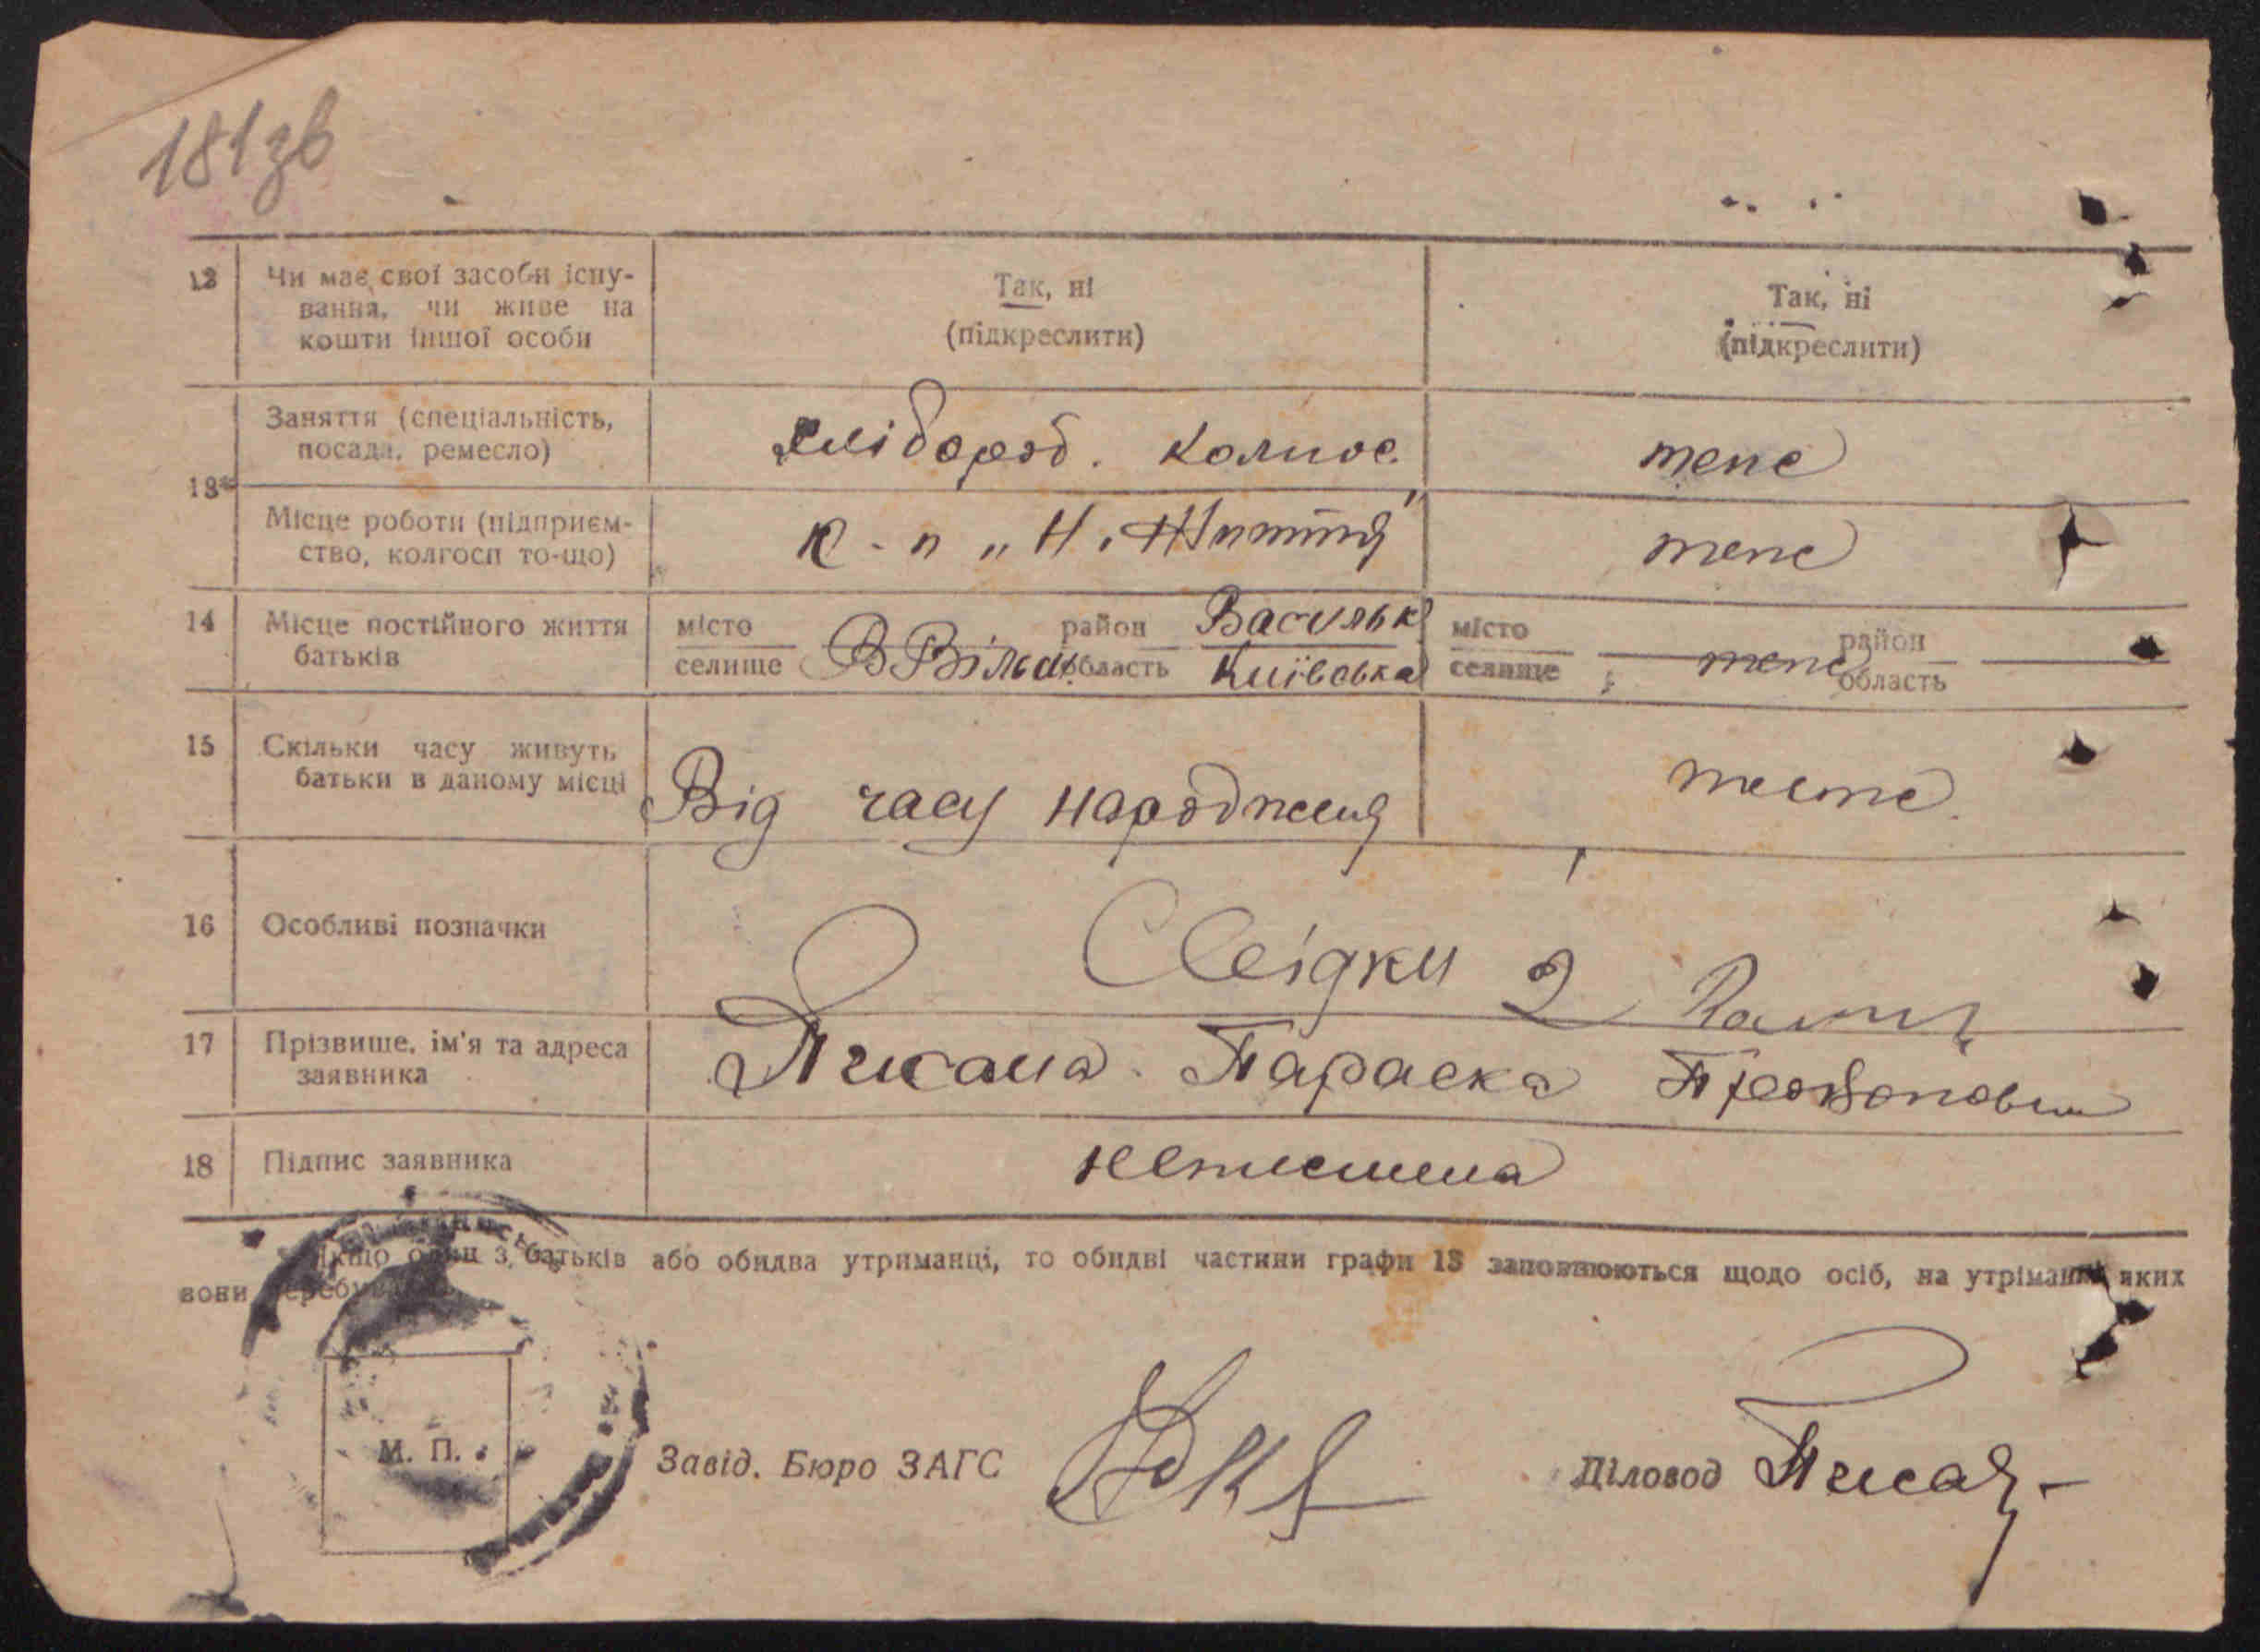 181зв
12 Чи має свої засоби існу-
вання, чи живе на
кошти іншої особи
Так, ні
(підкреслити)
Так, ні
(підкреслити)
13*
Заняття (спеціальність,
посада, ремесло)
хлібороб. колгос.
теж
Місце роботи (підприєм-
ство, колгосп то-що)
к-п „Н. Життя"
теж
14 Місце постійного життя
батьків
місто
селище
В Вільш.
район Васильк
область Київська
місто
селище
теж
район
область
15 Скільки часу живуть
батьки в даному місці
Від часу народження
теж
16 Особливі позначки
Свідки 2
17 Прізвище, ім'я та адреса
заявника
Параска
18 Підпис заявника
неписьмена
Якщо один з батьків або обидва утриманці, то обидві частини графи 13 заповнюються щодо осіб, на утріманні яких
вони перебувають
М. П.
Завід. Бюро ЗАГС
Діловод